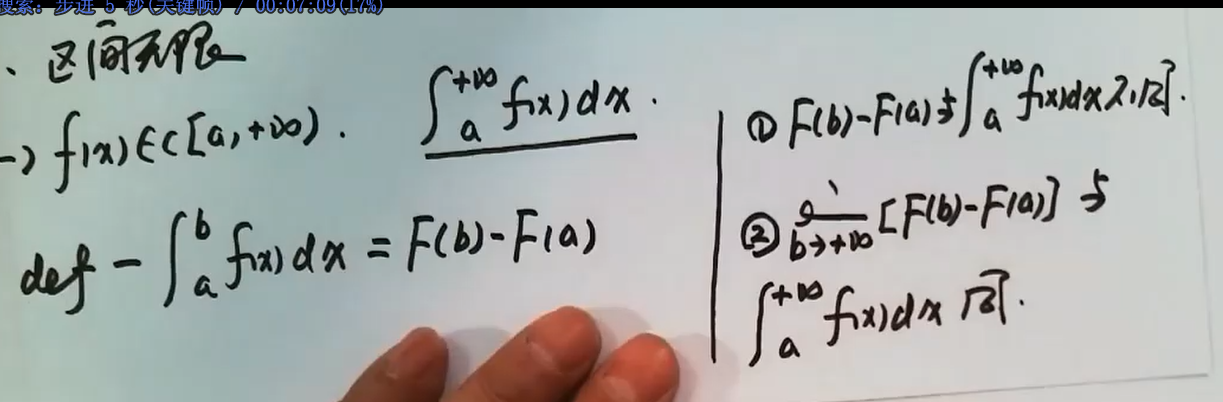 搜索: 步进 5 秒(关键帧) / 00:07:09(17%)
、区间无限
→) f(x)∈C[a,+∞). ∫_a^{+∞} f(x)dx.
def - ∫_a^b f(x)dx = F(b)-F(a)
① F(b)-F(a)与∫_a^{+∞} f(x)dx不同.
② lim_{b→+∞} [F(b)-F(a)] 与
∫_a^{+∞} f(x)dx 同.